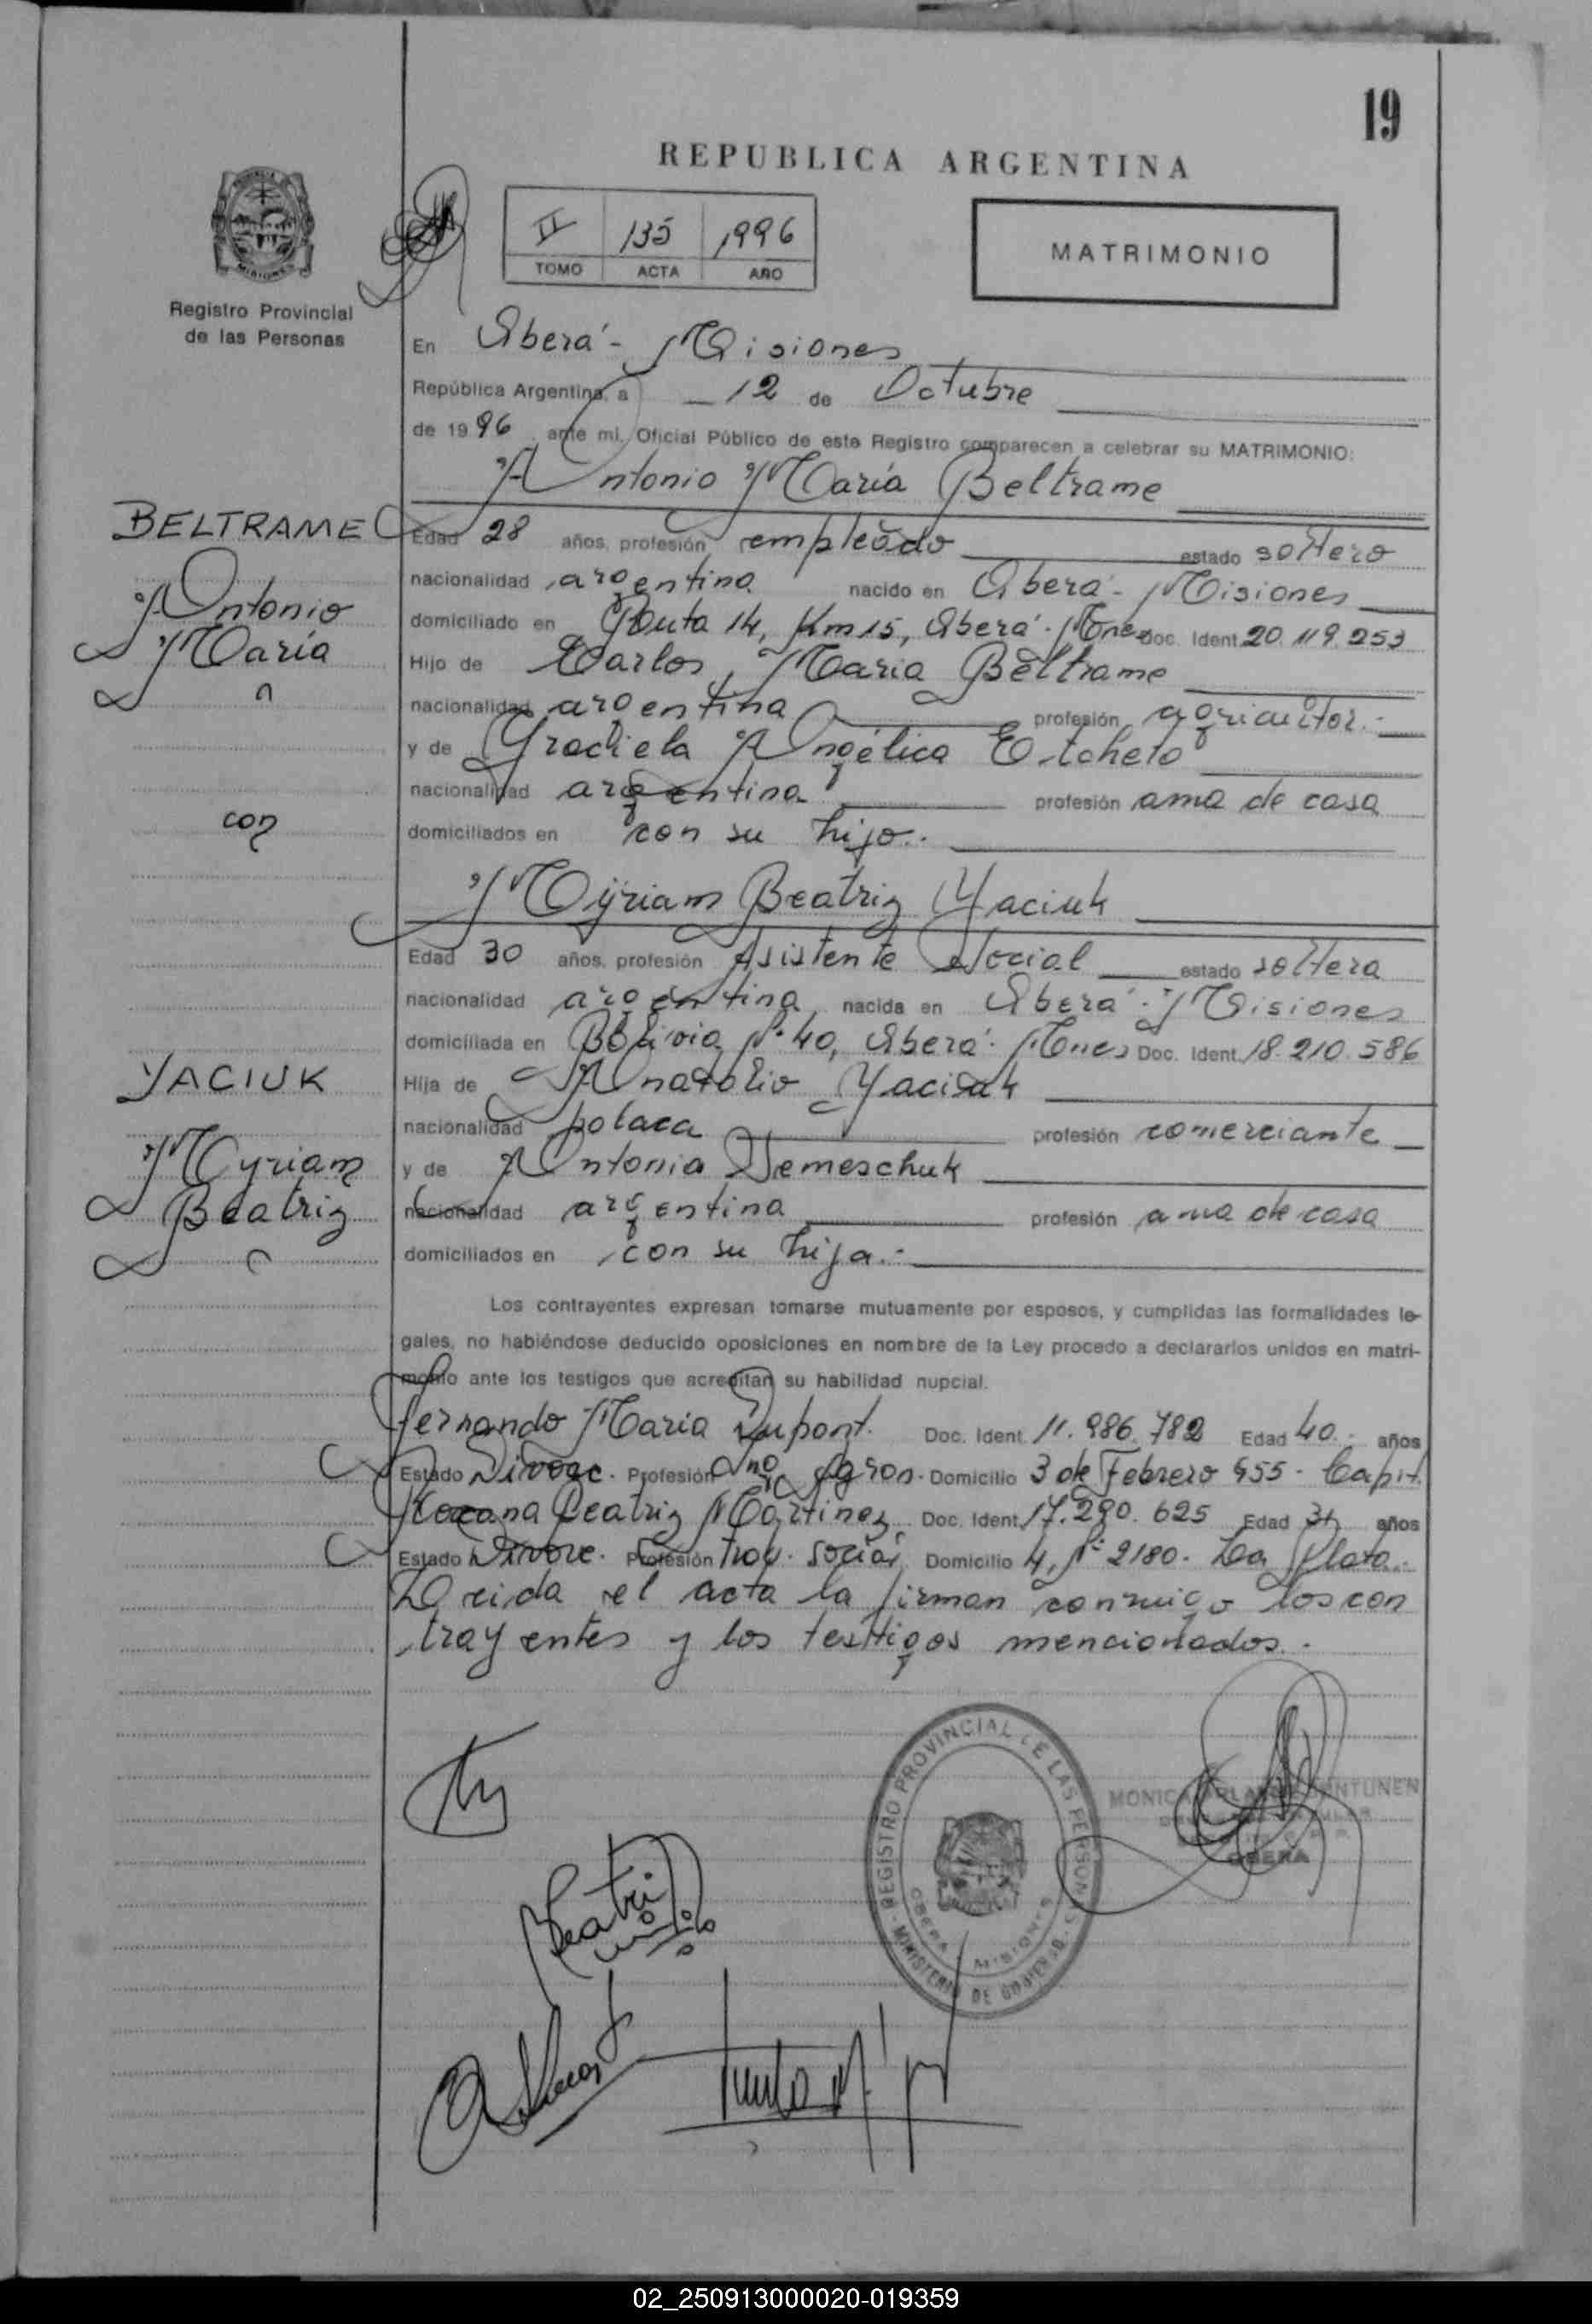 19
REPUBLICA ARGENTINA
II 135 1996
TOMO ACTA AÑO
MATRIMONIO
Registro Provincial
de las Personas
En Oberá - Misiones
República Argentina, a 12 de Octubre
de 1996 ante mí, Oficial Público de este Registro comparecen a celebrar su MATRIMONIO:
Antonio María Beltrame
BELTRAME
Antonio
María
Edad 28 años, profesión empleado estado soltero
nacionalidad argentina nacido en Oberá - Misiones
domiciliado en Ruta 14, Km 15, Oberá - Mnes Doc. Ident. 20.119.253
Hijo de Carlos María Beltrame
nacionalidad argentina profesión agricultor.-
y de Graciela Angélica
nacionalidad argentina profesión ama de casa
domiciliados en con su hijo.-
con
Myriam Beatriz Yaciuk
Edad 30 años, profesión Asistente Social estado soltera
nacionalidad argentina nacida en Oberá - Misiones
domiciliada en Bolivia Nº 40, Oberá - Mnes Doc. Ident. 18.210.586
YACIUK
Myriam
Beatriz
Hija de Anatolio Yaciuk
nacionalidad polaca profesión comerciante
y de Antonia Demeschuk
nacionalidad argentina profesión ama de casa
domiciliados en con su hija.-
Los contrayentes expresan tomarse mutuamente por esposos, y cumplidas las formalidades le-
gales, no habiéndose deducido oposiciones en nombre de la Ley procedo a declararlos unidos en matri-
monio ante los testigos que acreditan su habilidad nupcial.
Fernando María Dupont. Doc. Ident. 11.986.782 Edad 40.- años
Estado Divorc. Profesión Ing. Agron. Domicilio 3 de Febrero 455 - Capit.
Roxana Beatriz Martinez Doc. Ident. 17.290.625 Edad 31 años
Estado Divorc. Profesión Trab. Social Domicilio 4, Nº 2180 - La Plata.-
Leida el acta la firman conmigo los con
trayentes y los testigos mencionados.-
Beatriz
REGISTRO PROVINCIAL DE LAS PERSONAS
MINISTERIO DE GOBIERNO
OBERA MISIONES
MONICA
OBERA
02_250913000020-019359